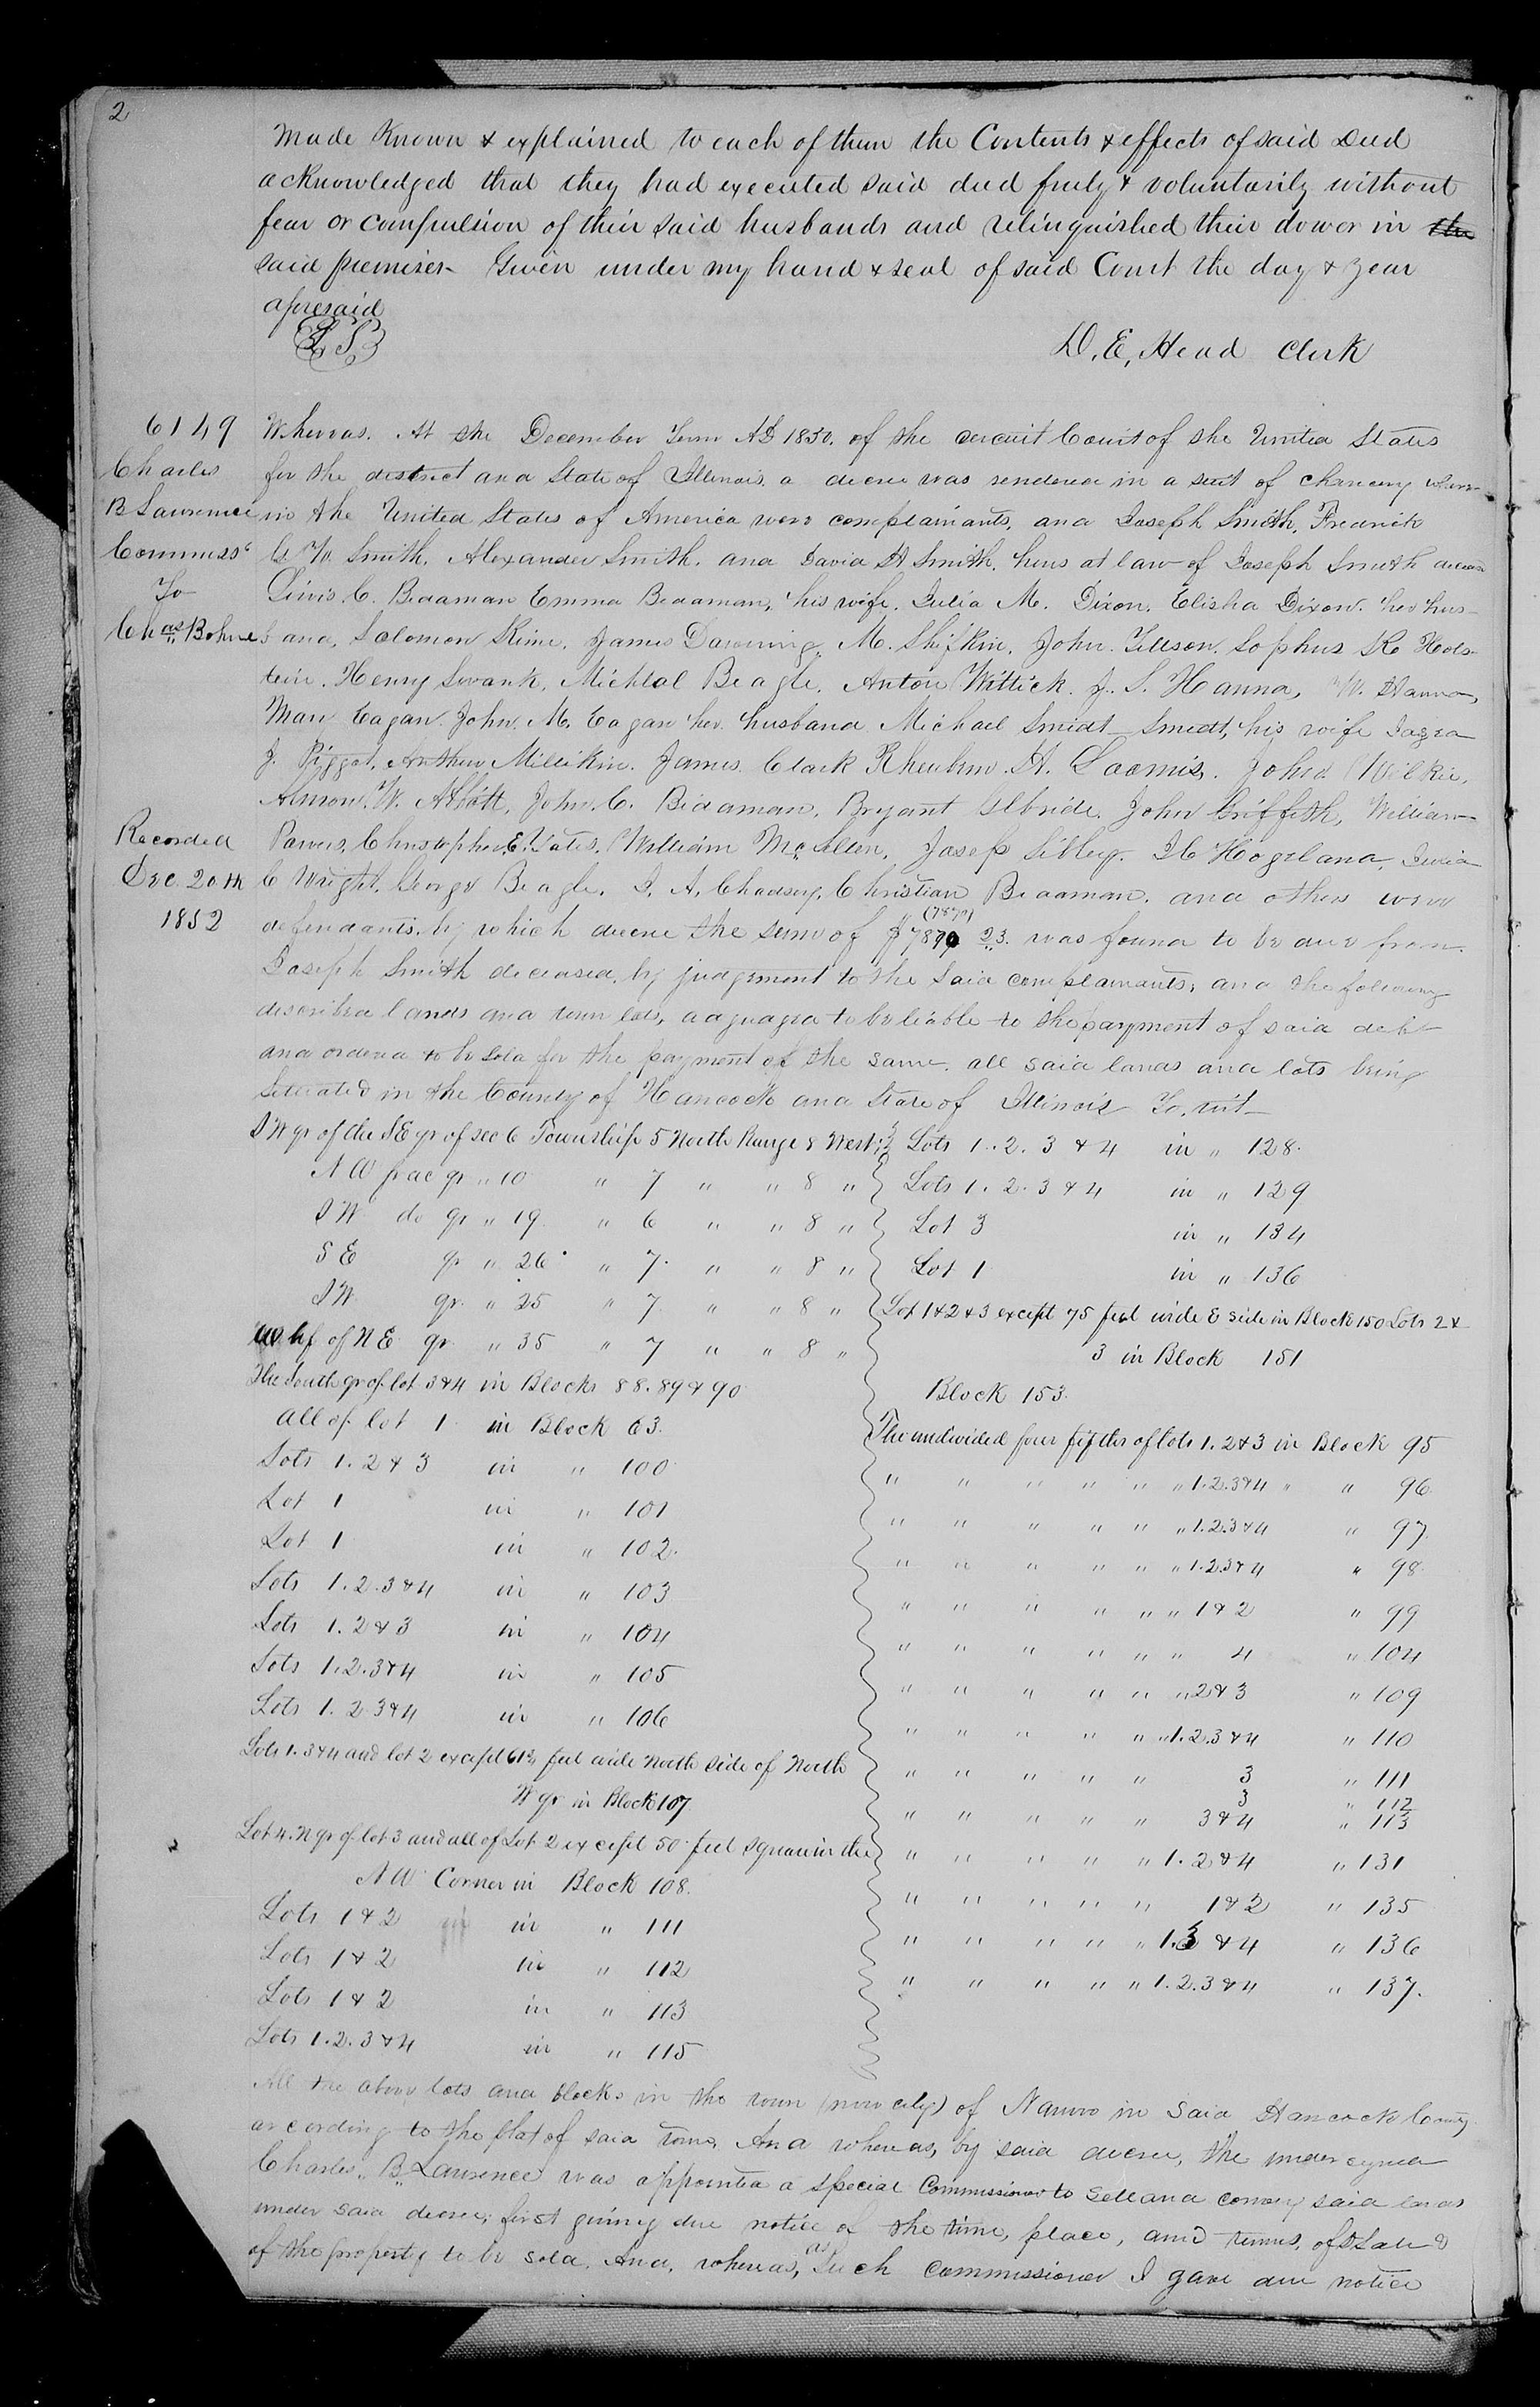 2
made Known & explained to each of them the Contents & effects of said Deed
acknowledged that they had executed said deed freely & voluntarily without
fear or compulsion of their said husbands and relinquished their dower in the
said premises Given under my hand & seal of said Court the day & year
aforesaid
LS
D. E. Head Clerk
6149
Charles
B Lawrence
Commissr
To
Chas. Bohne
Recorded
Dec. 20th
1852
Whereas. At the December Term AD 1850. of the circuit Court of the United States
for the district and State of Illinois a decree was rendered in a suit of chancery where-
in the United States of America were complainants, and Joseph Smith, Fredrick
G. W. Smith, Alexander Smith, and David H Smith, heirs at law of Joseph Smith
Lewis C. Bidaman Emma Bidaman, his wife, Julia M. Dixon, Elisha Dixon, her hus-
band, Solomon Kime, James Dawning, M. Shifkin, John Tillson, Sophus Ko Hols-
tein, Henry Swank, Micheal Beagle, Anton Wittick, J. S. Hanna, W. Hanna,
Mary Eagan, John M. Eagan her husband Michael Smidt Smidt, his wife
J. Piggot, Arthur Millikin, James Clark H. Loomis, John Wilkie,
Almon W. Abbott, John C. Bidaman, Bryant John Griffith, William
Powers, Christopher E. Yates, William McAllen, Josep Sibley, Hogeland,
C Wright, George Beagle, A. Chadsey, Christian Bidaman, and others were
defendants, by which decree the sum of $7870 23. was found to be due from
(7870)
Joseph Smith deceased, by judgement to the said complainants, and the following
described lands and town lots, adjudged to be liable to the payment of said debt
and ordered to be sold for the payment of the same, all said lands and lots being
situated in the County of Hancock and State of Illinois To, wit—
SW qr of the SE qr of sec 6 Township 5 North Range 8 West
NW frac qr " 10 " 7 " " 8 "
SW do qr " 19 " 6 " " 8 "
SE qr " 26 " 7 " " 8 "
SW qr. " 25 " 7 " " 8 "
W hf of NE qr " 35 " 7 " " 8 "
The South qr of lot 3&4 in Blocks 88. 89 & 90
all of lot 1 in Block 63.
Lots 1. 2 & 3 in " 100
Lot 1 in " 101
Lot 1 in " 102.
Lots 1. 2. 3 & 4 in " 103
Lots 1. 2 & 3 in " 104
Lots 1. 2. 3 & 4 in " 105
Lots 1. 2 3 & 4 in " 106
Lots 1. 3 & 4 and lot 2 except feet wide North side of North
W qr in Block 107
Lot 4. N qr of lot 3 and all of Lot 2 except 50 feet square in the
NW Corner in Block 108.
Lots 1 & 2 in " 111
Lots 1 & 2 in " 112
Lots 1 & 2 in " 113
Lots 1. 2. 3 & 4 in " 115
Lots 1. 2. 3 & 4 in " 128.
Lots 1. 2. 3 & 4 in " 129
Lot 3 in " 134
Lot 1 in " 136
Lot 1 & 2 & 3 except 75 feet wide E side in Block 150 Lots 2 &
3 in Block 151
Block 153.
The undivided four fifths of lots 1. 2 & 3 in Block 95
" " " " " " 1. 2. 3 & 4 " " 96.
" " " " " " 1. 2. 3 & 4 " 97.
" " " " " " 1. 2. 3 & 4 " 98.
" " " " " " 1 & 2 " 99
" " " " " " 4 " 104
" " " " " " 2 & 3 " 109
" " " " " " 1. 2. 3 & 4 " 110
" " " " " 3 " 111
3 " 112
" " " " " 3 & 4 " 113
" " " " " 1. 2 & 4 " 131
" " " " " 1 & 2 " 135
" " " " " 1. 3 & 4 " 136
" " " " " 1. 2. 3 & 4 " 137.
All the above lots and blocks in the town (now city) of Nauvoo in said Hancock County
according to the plat of said town, And whereas, by said decree, the undersigned
Charles. B. Lawrence was appointed a special Commissioner to sell and convey said lands
under said decree, first giving due notice of the time, place, and terms, of Sale &
of the property to be sold. And, whereas, as such commissioner I gave due notice